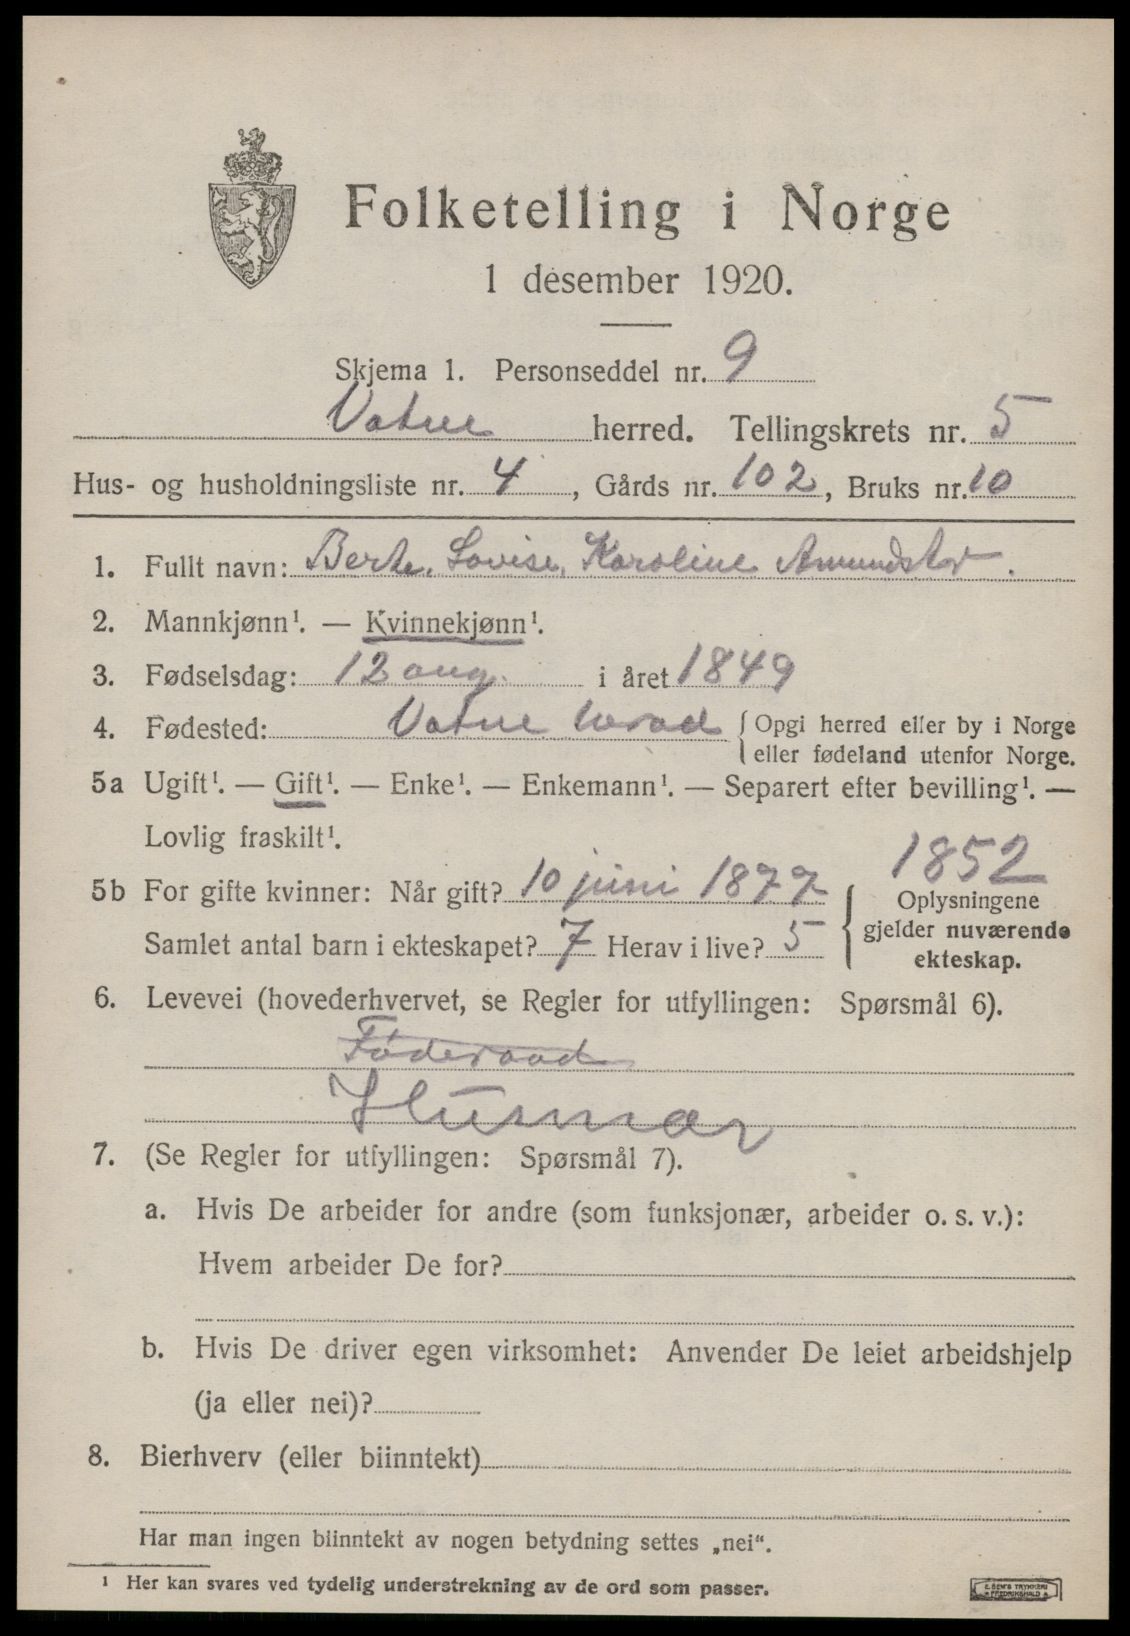 Folketelling i Norge
1 desember 1920.
Skjema 1. Personseddel nr. 9
Vatne herred. Tellingskrets nr. 5
Hus- og husholdningsliste nr. 4, Gårds nr. 102, Bruks nr. 10
1. Fullt navn: Berte, Lovise, Karoline Amundstad.
2. Mannkjønn¹. — Kvinnekjønn¹.
3. Fødselsdag: 12 aug. i året 1849
4. Fødested: Vatne herad {Opgi herred eller by i Norge
eller fødeland utenfor Norge.
5a Ugift¹. — Gift¹. — Enke¹. — Enkemann¹. — Separert efter bevilling¹. —
Lovlig fraskilt¹.
1852
5b For gifte kvinner: Når gift? 10 juni 1877
Samlet antal barn i ekteskapet? 7 Herav i live? 5
{Oplysningene
gjelder nuværende
ekteskap.
6. Levevei (hovederhvervet, se Regler for utfyllingen: Spørsmål 6).
Föderaad
Husmor
7. (Se Regler for utfyllingen: Spørsmål 7).
a. Hvis De arbeider for andre (som funksjonær, arbeider o. s. v.):
Hvem arbeider De for?
b. Hvis De driver egen virksomhet: Anvender De leiet arbeidshjelp
(ja eller nei)?
8. Bierhverv (eller biinntekt)
Har man ingen biinntekt av nogen betydning settes „nei“.
¹ Her kan svares ved tydelig understrekning av de ord som passer.
E. SEM'S TRYKKERI
FREDRIKSHALD